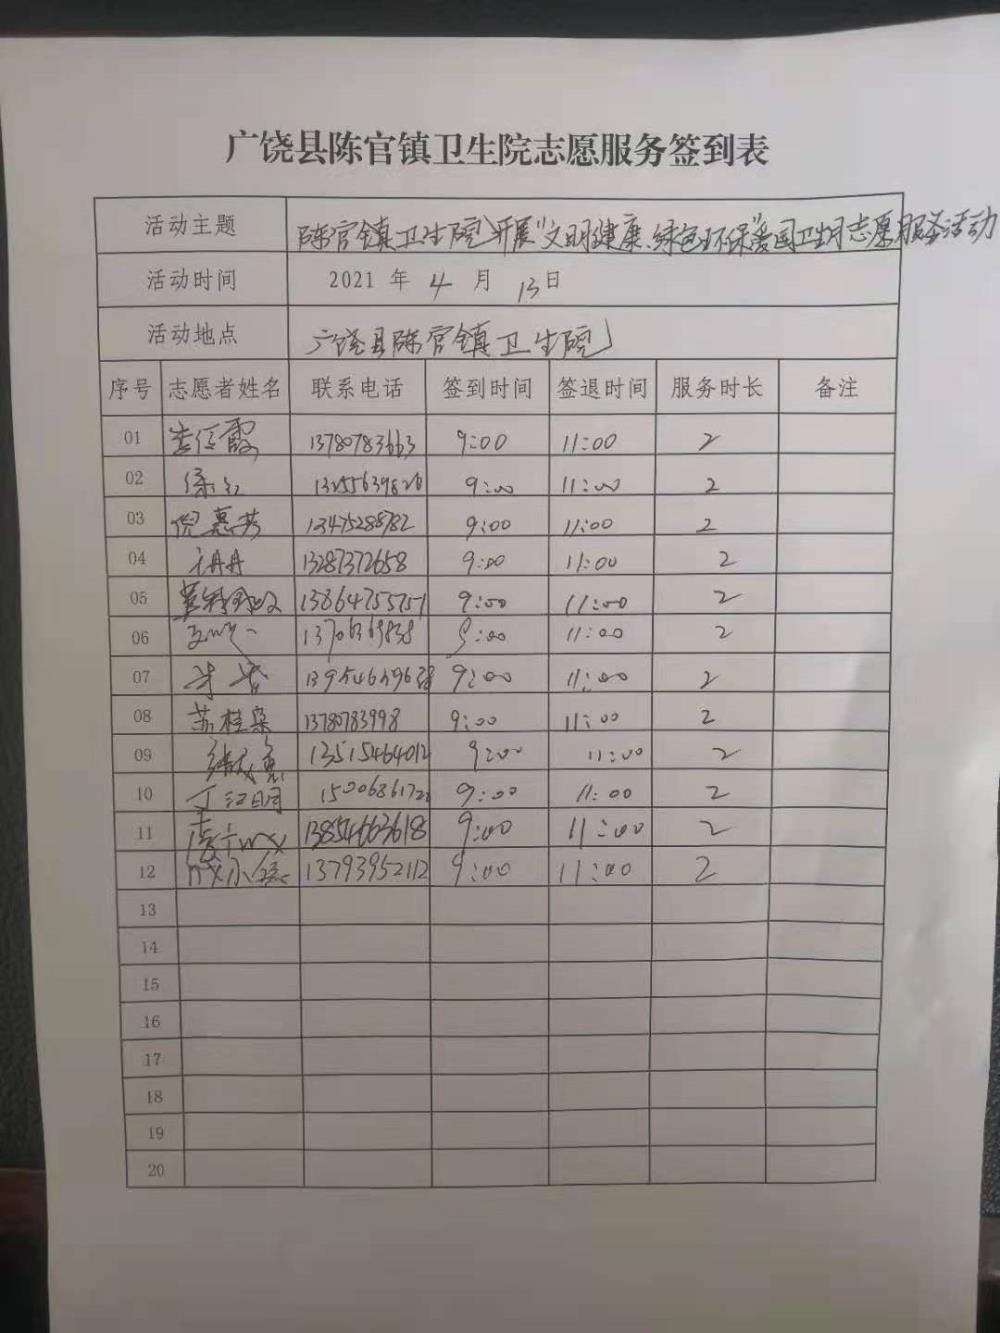 广饶县陈官镇卫生院志愿服务签到表
活动主题 陈官镇卫生院开展“文明健康、绿色环保”爱国卫生月志愿服务活动
活动时间 2021 年 4 月 13 日
活动地点 广饶县陈官镇卫生院
序号 志愿者姓名 联系电话 签到时间 签退时间 服务时长 备注
01 13780783663 9:00 11:00 2
02 9:00 11:00 2
03 倪惠芳 13475288782 9:00 11:00 2
04 13287372658 9:00 11:00 2
05 13864755751 9:00 11:00 2
06 9:00 11:00 2
07 9:00 11:00 2
08 苏桂枭 13780783998 9:00 11:00 2
09 13515464012 9:00 11:00 2
10 丁江明 9:00 11:00 2
11 13854663618 9:00 11:00 2
12 13793952112 9:00 11:00 2
13
14
15
16
17
18
19
20